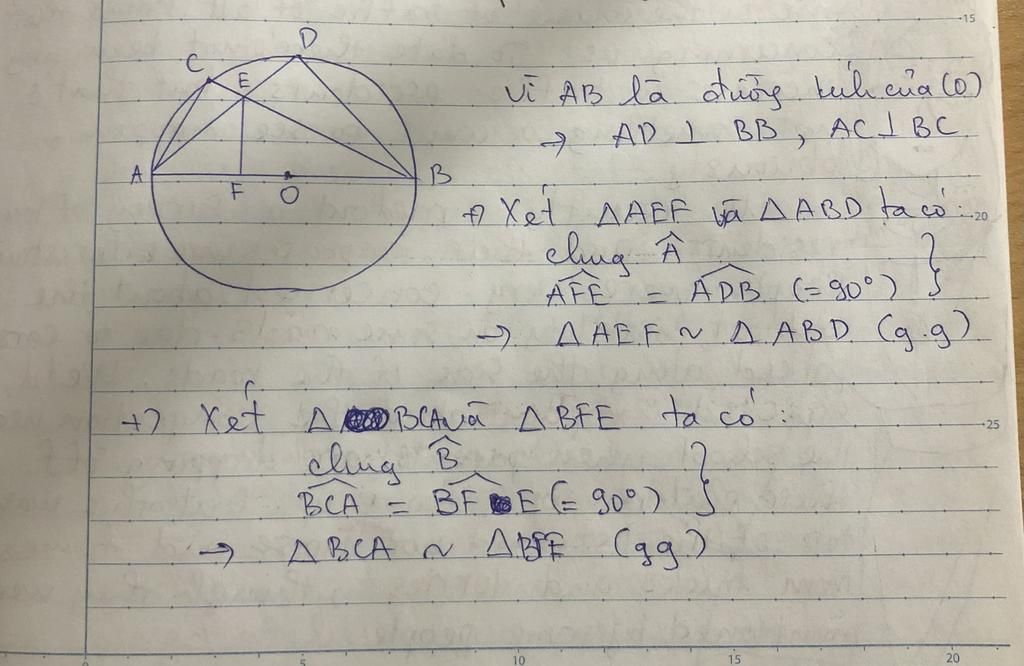 D
C
E
A
F
O
B
15
Vì AB là đường kính của (O)
→ AD ⊥ BB, AC ⊥ BC
+) Xét △AEF và △ABD ta có: 20
chung Â
AFE = ADB (= 90°) }
→ △AEF ~ △ABD (g.g)
+) Xét △ BCA và △BFE ta có: 25
chung B̂
BCA = BFE (= 90°) }
→ △BCA ~ △BFE (gg)
0 5 10 15 20